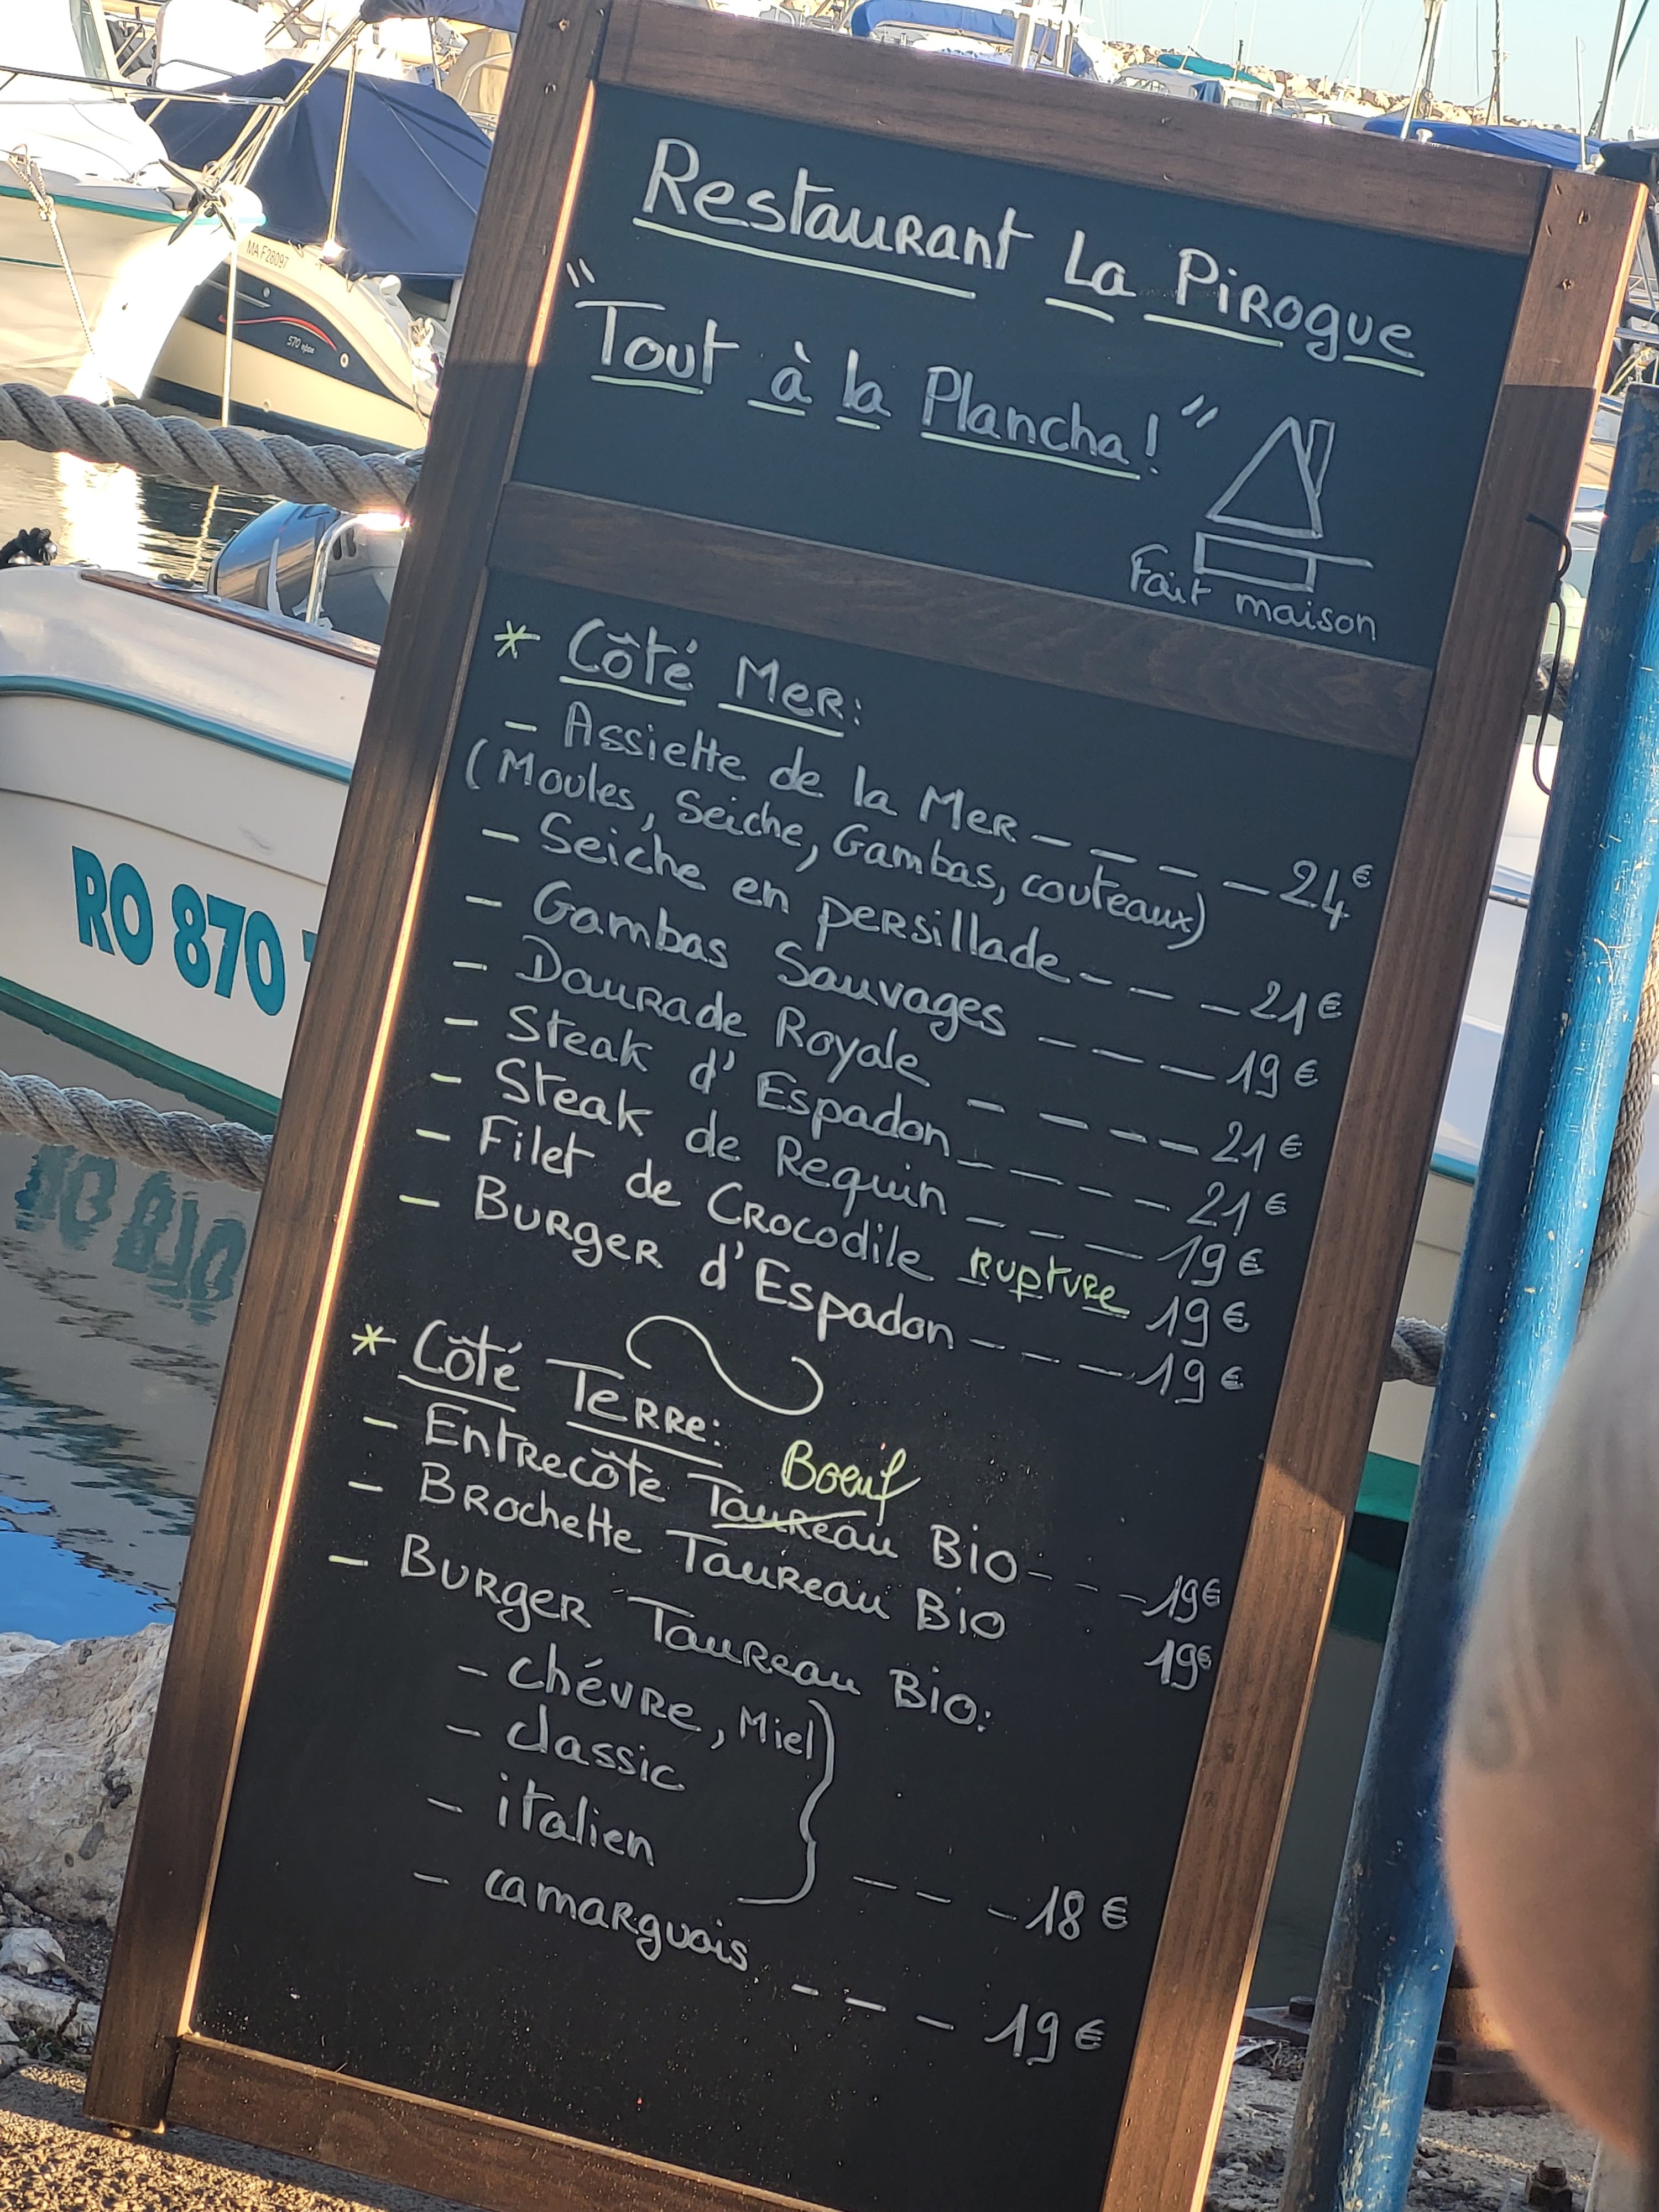 Restaurant La Pirogue
"Tout à la Plancha!"
Fait maison
* Côté Mer:
- Assiette de la Mer - - - - 24€
(Moules, Seiche, Gambas, couteaux)
- Seiche en persillade - - - 21€
- Gambas Sauvages - - - - 19€
- Daurade Royale - - - - - 21€
- Steak d'Espadon - - - - - 21€
- Steak de Requin - - - - 19€
- Filet de Crocodile rupture 19€
- Burger d'Espadon - - - - 19€
* Côté Terre:
Boeuf
- Entrecôte Taureau Bio - - - 19€
- Brochette Taureau Bio 19€
- Burger Taureau Bio:
- chévre, Miel
- classic
- italien
- - - 18€
- camarguais - - - 19€
RO 870
MA F28097
570 open